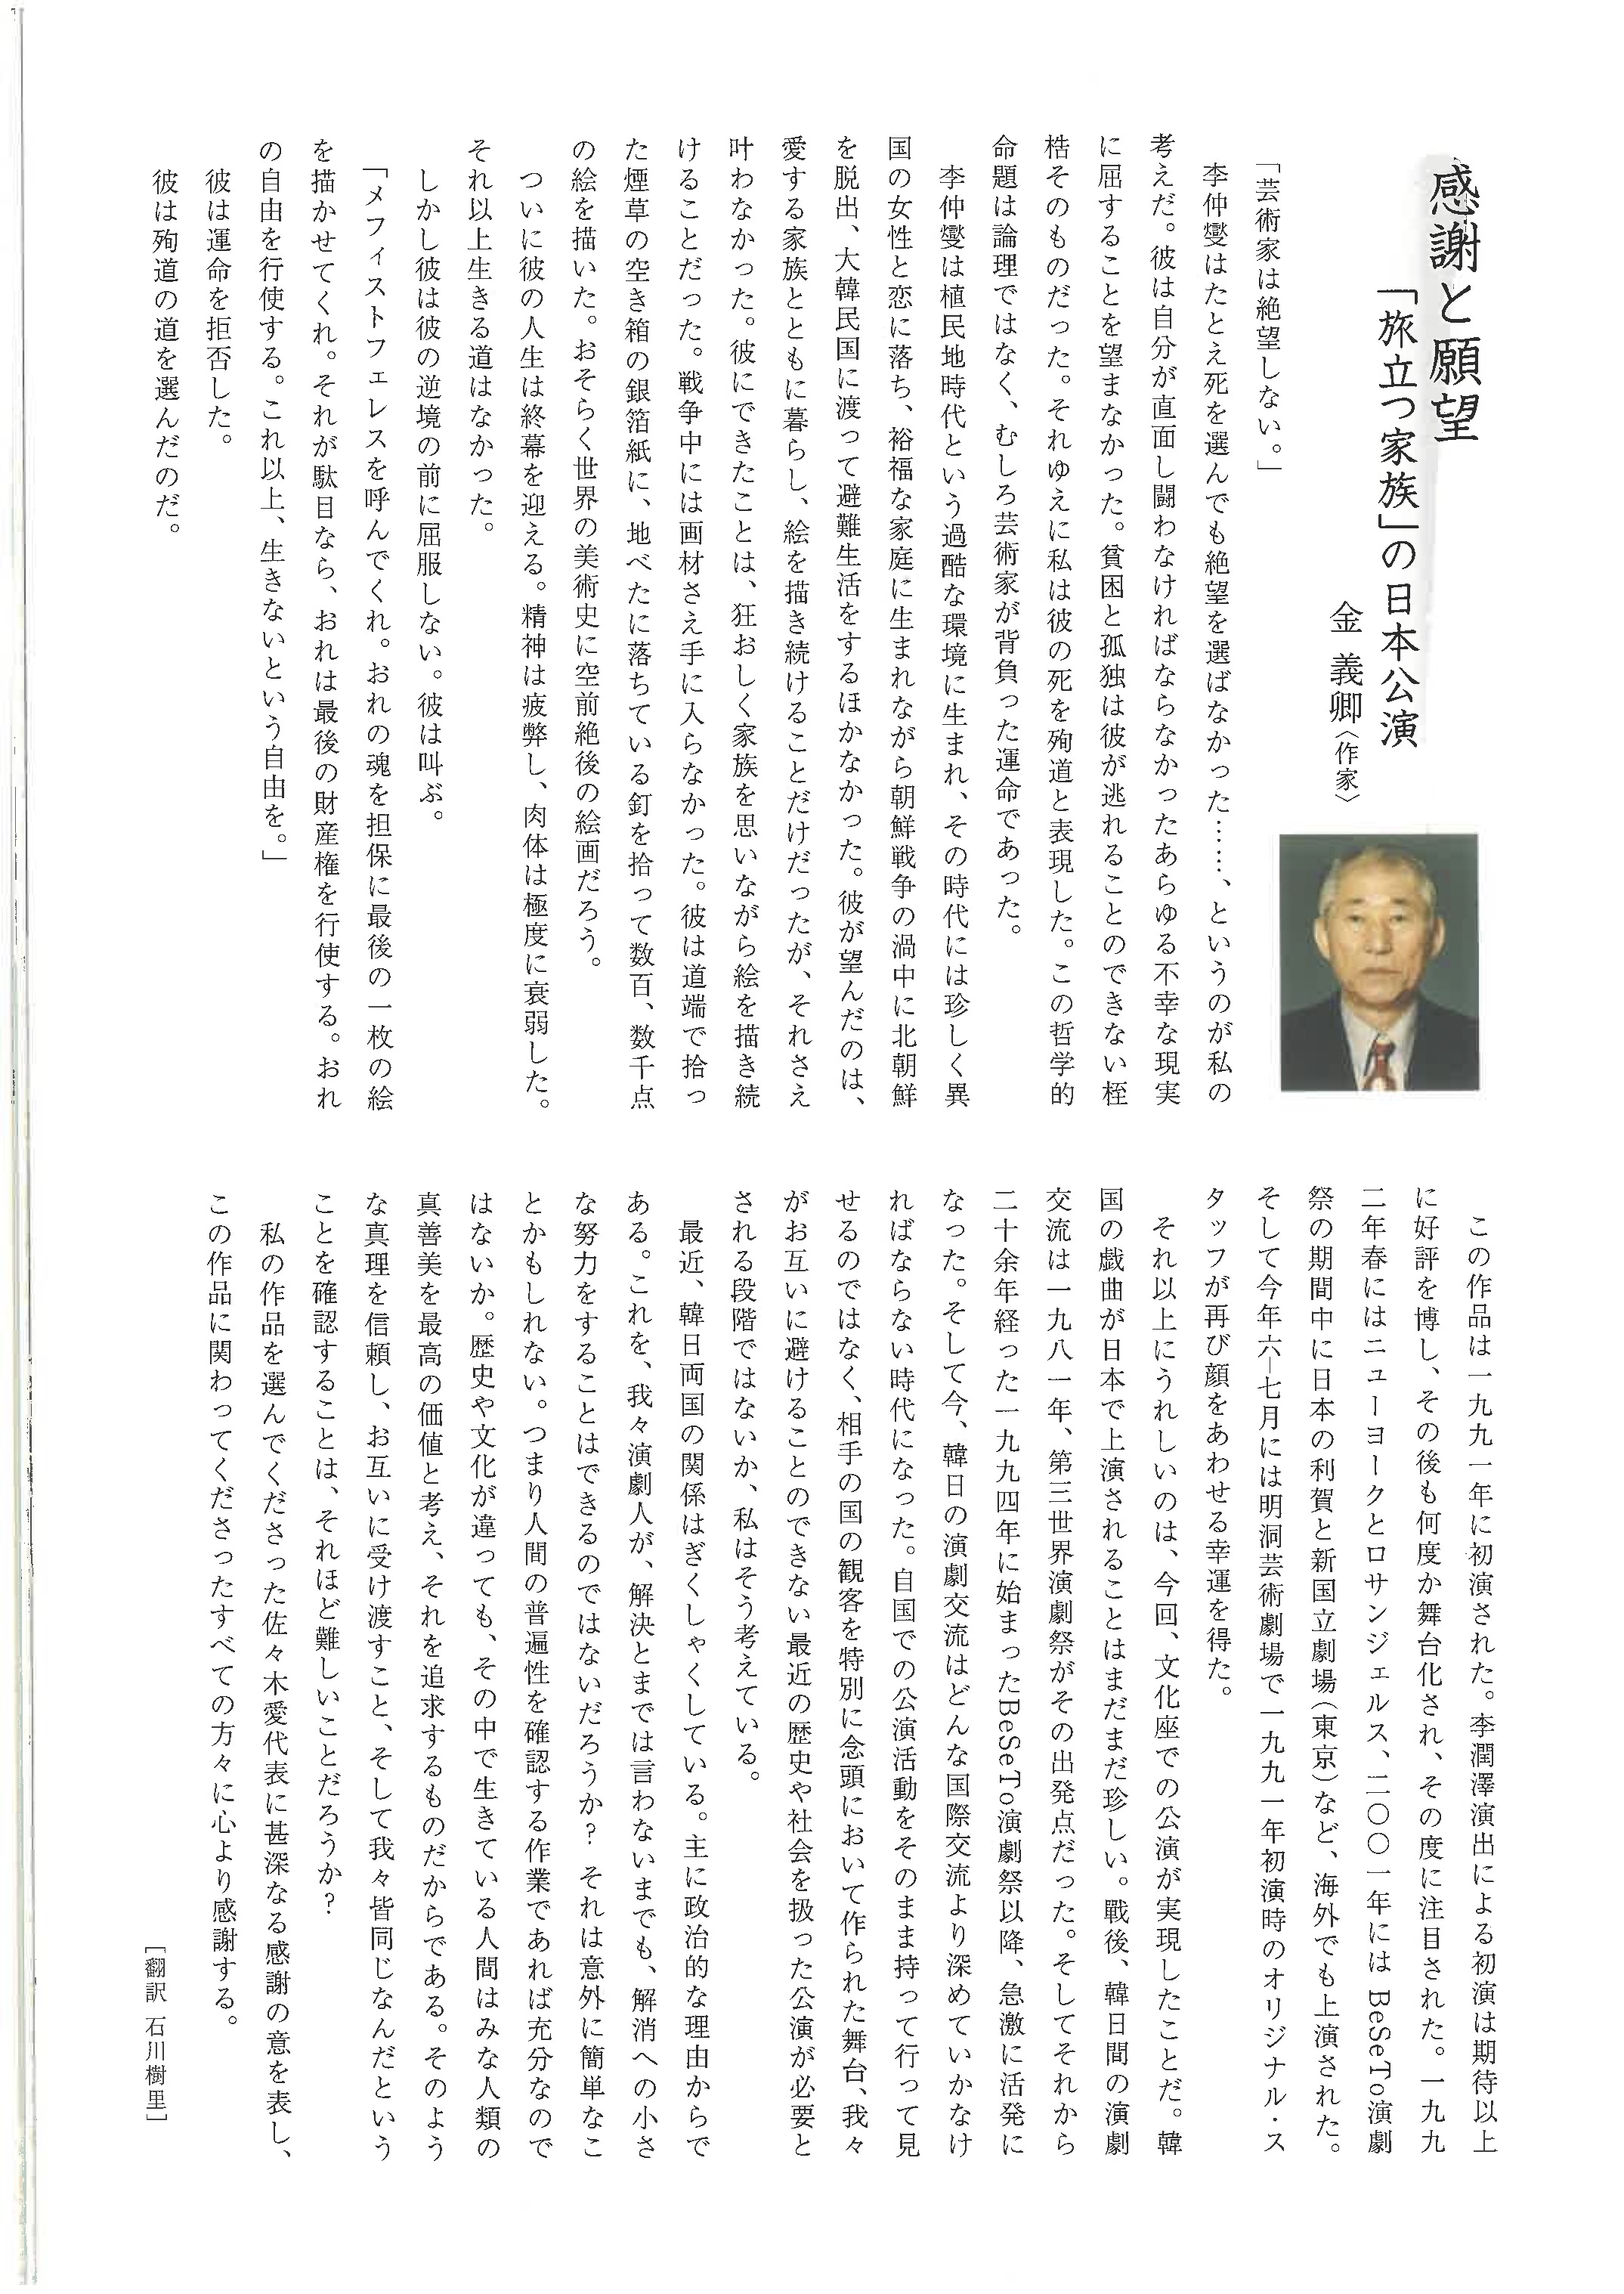 感謝と願望
「旅立つ家族」の日本公演
金 義卿〈作家〉
「芸術家は絶望しない。」
李仲燮はたとえ死を選んでも絶望を選ばなかった……、というのが私の
考えだ。彼は自分が直面し闘わなければならなかったあらゆる不幸な現実
に屈することを望まなかった。貧困と孤独は彼が逃れることのできない桎
梏そのものだった。それゆえに私は彼の死を殉道と表現した。この哲学的
命題は論理ではなく、むしろ芸術家が背負った運命であった。
李仲燮は植民地時代という過酷な環境に生まれ、その時代には珍しく異
国の女性と恋に落ち、裕福な家庭に生まれながら朝鮮戦争の渦中に北朝鮮
を脱出、大韓民国に渡って避難生活をするほかなかった。彼が望んだのは、
愛する家族とともに暮らし、絵を描き続けることだけだったが、それさえ
叶わなかった。彼にできたことは、狂おしく家族を思いながら絵を描き続
けることだった。戦争中には画材さえ手に入らなかった。彼は道端で拾っ
た煙草の空き箱の銀箔紙に、地べたに落ちている釘を拾って数百、数千点
の絵を描いた。おそらく世界の美術史に空前絶後の絵画だろう。
ついに彼の人生は終幕を迎える。精神は疲弊し、肉体は極度に衰弱した。
それ以上生きる道はなかった。
しかし彼は彼の逆境の前に屈服しない。彼は叫ぶ。
「メフィストフェレスを呼んでくれ。おれの魂を担保に最後の一枚の絵
を描かせてくれ。それが駄目なら、おれは最後の財産権を行使する。おれ
の自由を行使する。これ以上、生きないという自由を。」
彼は運命を拒否した。
彼は殉道の道を選んだのだ。
この作品は一九九一年に初演された。李潤澤演出による初演は期待以上
に好評を博し、その後も何度か舞台化され、その度に注目された。一九九
二年春にはニューヨークとロサンジェルス、二〇〇一年には BeSeTo演劇
祭の期間中に日本の利賀と新国立劇場（東京）など、海外でも上演された。
そして今年六―七月には明洞芸術劇場で一九九一年初演時のオリジナル・ス
タッフが再び顔をあわせる幸運を得た。
それ以上にうれしいのは、今回、文化座での公演が実現したことだ。韓
国の戯曲が日本で上演されることはまだまだ珍しい。戦後、韓日間の演劇
交流は一九八一年、第三世界演劇祭がその出発点だった。そしてそれから
二十余年経った一九九四年に始まったBeSeTo演劇祭以降、急激に活発に
なった。そして今、韓日の演劇交流はどんな国際交流より深めていかなけ
ればならない時代になった。自国での公演活動をそのまま持って行って見
せるのではなく、相手の国の観客を特別に念頭において作られた舞台、我々
がお互いに避けることのできない最近の歴史や社会を扱った公演が必要と
される段階ではないか、私はそう考えている。
最近、韓日両国の関係はぎくしゃくしている。主に政治的な理由からで
ある。これを、我々演劇人が、解決とまでは言わないまでも、解消への小さ
な努力をすることはできるのではないだろうか？ それは意外に簡単なこ
とかもしれない。つまり人間の普遍性を確認する作業であれば充分なので
はないか。歴史や文化が違っても、その中で生きている人間はみな人類の
真善美を最高の価値と考え、それを追求するものだからである。そのよう
な真理を信頼し、お互いに受け渡すこと、そして我々皆同じなんだという
ことを確認することは、それほど難しいことだろうか？
私の作品を選んでくださった佐々木愛代表に甚深なる感謝の意を表し、
この作品に関わってくださったすべての方々に心より感謝する。
［翻訳 石川樹里］